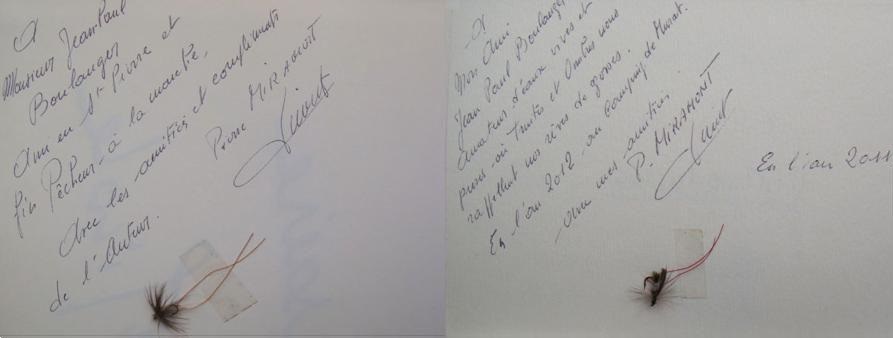 A
Monsieur Jean Paul
Boulanger
Ami en St Pierre et
fin Pêcheur à la mouche,
Avec les amitiés et compliments
de l'Auteur.
Pierre MIRAMONT
A
Mon Ami
Jean Paul Boulanger
Amateur d'eaux vives et
pures où Truites et Ombres nous
rappellent nos rêves de gosses.
En l'an 2012 au Camping de Murat.
Avec mes amitiés
P. MIRAMONT
En l'an 2011